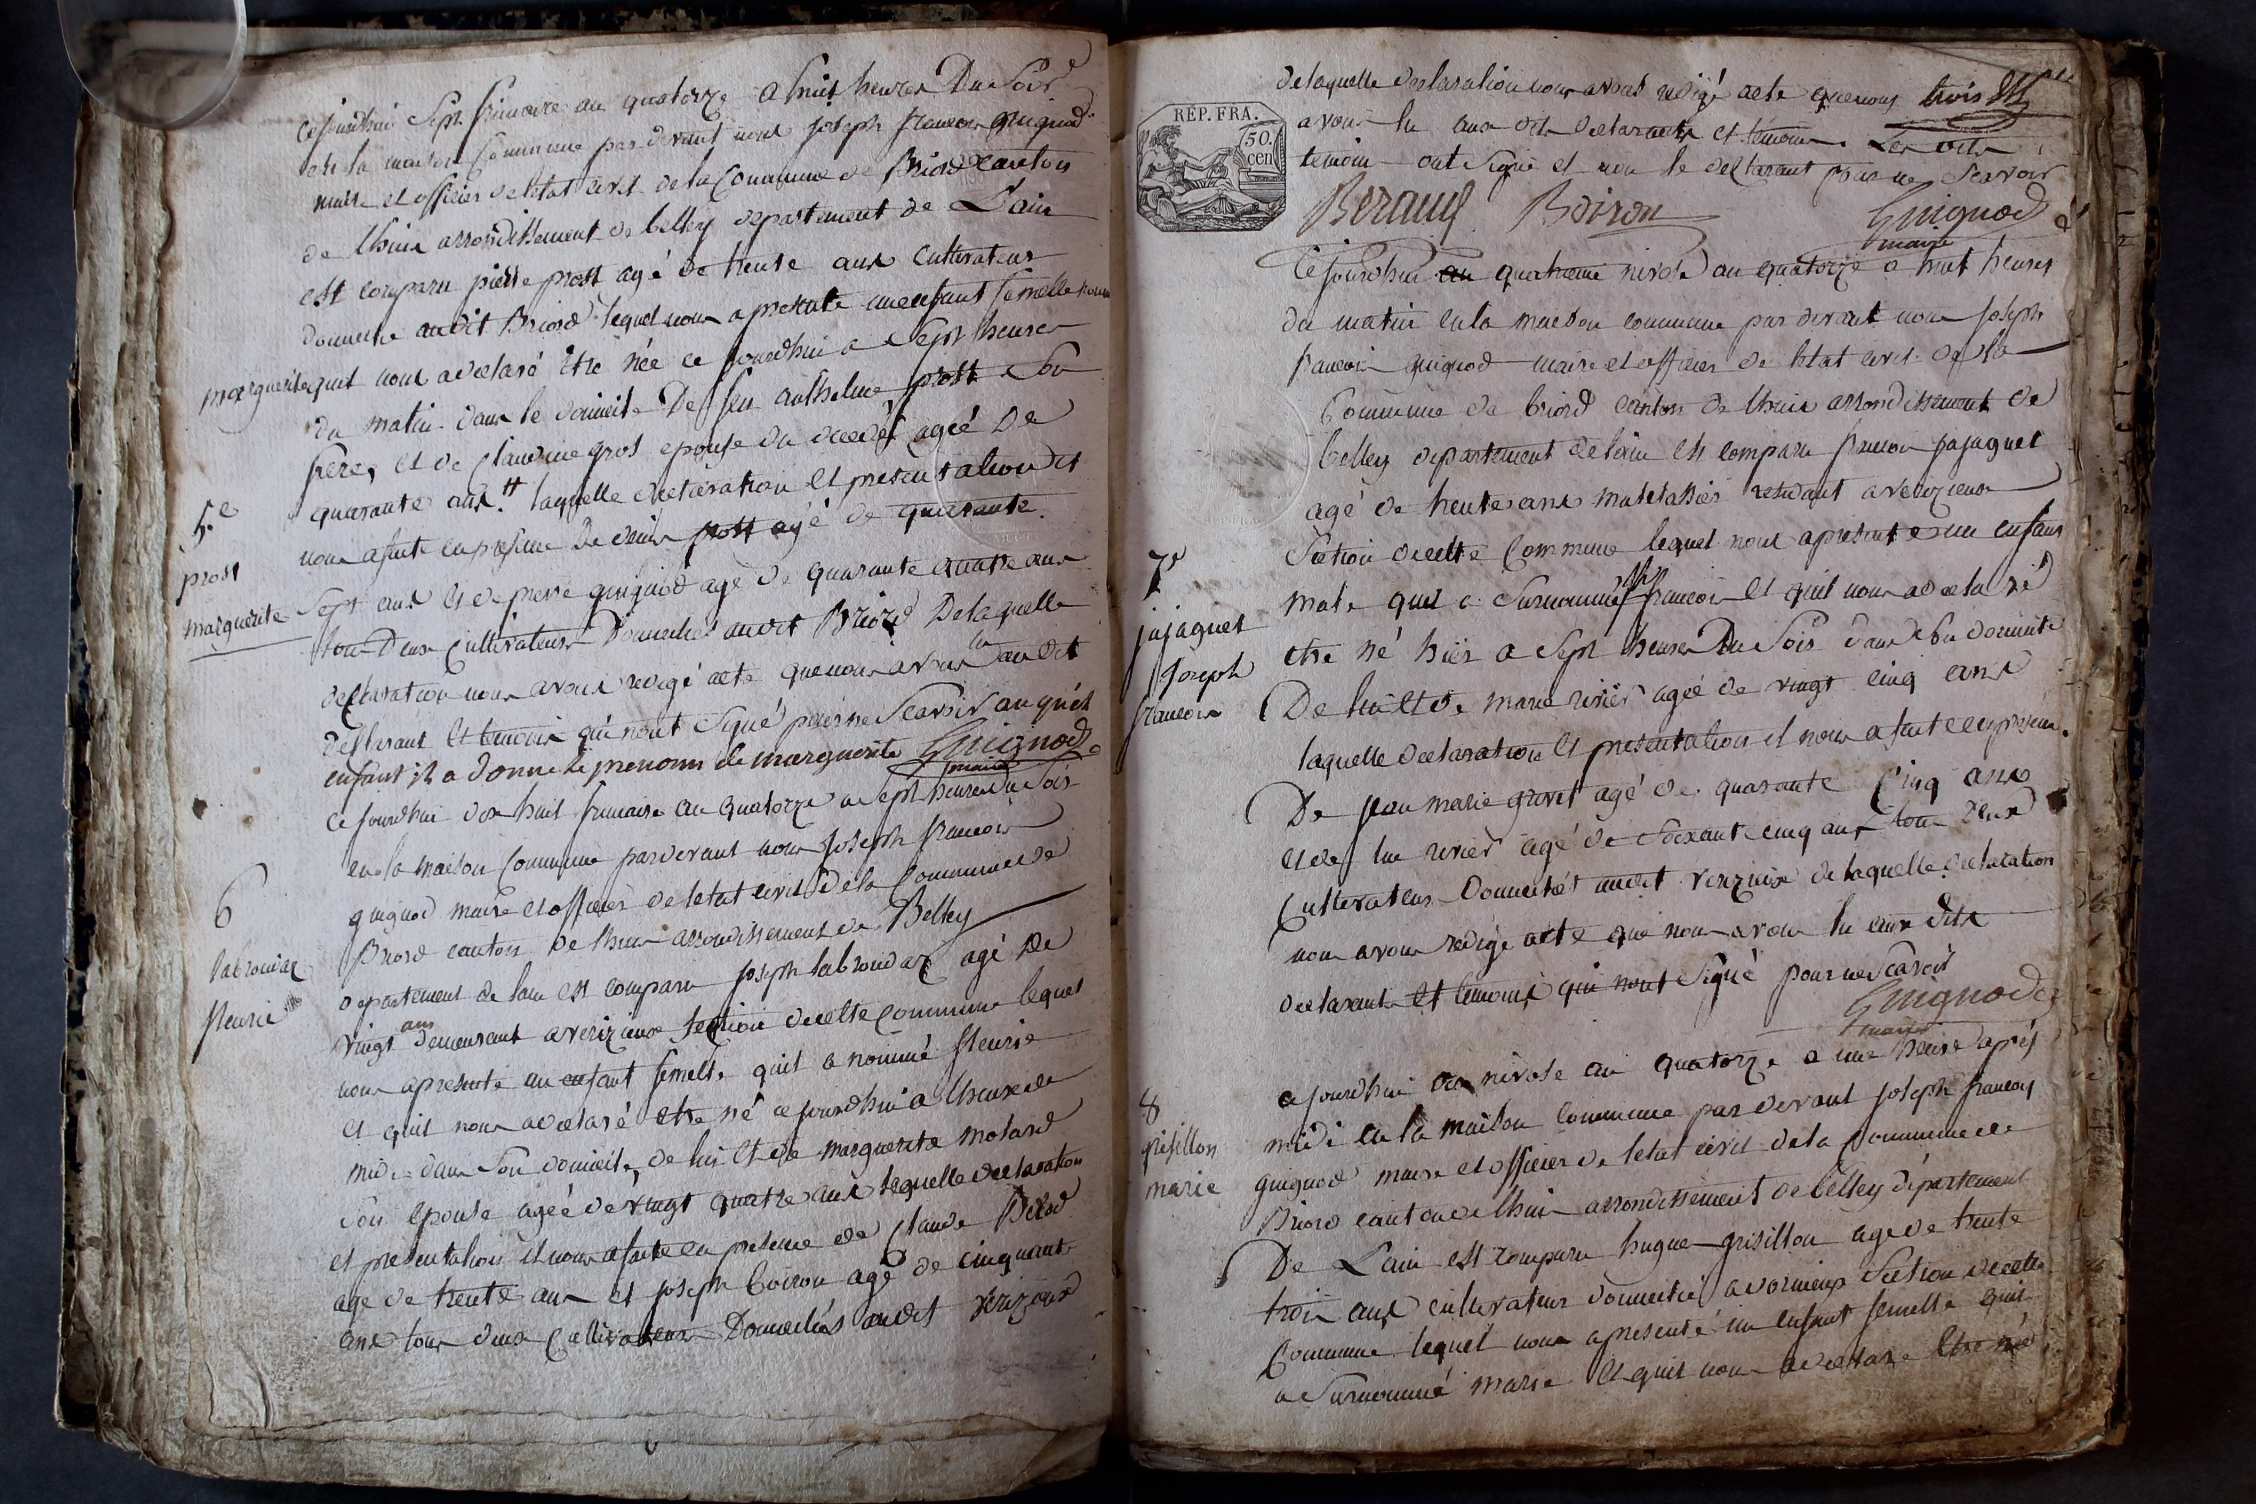 cejourdhui Sept frimaire an quatorze a huit heures Du Soir
en la maison Commune pardevant nous joseph francois guignod
maire et officier de letat civil de la Commune de Briord canton
de lhuis arrondissement de belley departement de L'ain
est comparu pierre prost agé de trente ans cultivateur
domicilié audit Briord lequel nous a presenté un enfant femelle
marguerite quil nous a declaré être née ce jourdhui a Sept heures
du matin dans le domicile De feu anthelme prost Son
frere, et de Claudine gros epouse du decedé agée De
quarante ans. laquelle declaration et presentation il
5e
nous a faite en presence De denis prost agé de quarante
prost
marguerite
Sept ans et de pierre guignod agé de quarante quatre ans
tous Deux Cultivateurs Domiciliés audit Briord De laquelle
declaration nous avons redigé acte que nous avons lu audit
declarant et temoins qui n'ont Signé pour ne Scavoir auquel
enfant il a donné le prenom de marguerite Guignod
maire
ce jourdhui dix huit frimaire an quatorze a Sept heures du Soir
en la maison Commune pardevant nous joseph francois
6
guignod maire et officier de letat civil de la Commune de
Briord canton de lhuis arrondissement de Belley
labrouiaz
fleurie
departement de lain est comparu joseph labrouiaz agé De
vingt ans demeurant a verizieux Section de cette Commune lequel
nous a presenté un enfant femelle quil a nommé fleurie
et quil nous a declaré etre né ce jourdhui a lheure de
midi dans Son domicile, de lui et de marguerite molard
Son epouse agée de vingt quatre ans laquelle declaration
et presentation il nous a faite en presence de Claude
agé de trente ans et joseph boiron agé de cinquante
ans tous deux Cultivateurs Domiciliés audit verizieux
de laquelle declaration nous avons redigé acte que nous trois
avons lu aux dits declarants et temoins. Les dits
temoins ont Signé et non le declarant pour ne Scavoir
REP. FRA.
50.
cen
Beraud Boiron Guignod
maire
Ce jourdhui quatrieme nivose an quatorze a huit heures
du matin en la maison commune par devant nous joseph
francois guignod maire et officier de letat civil de la
Commune de briord canton de lhuis arrondissement de
belley departement de lain est comparu francois jujaguet
agé de trente ans matelassier residant a verizieux
Section de cette Commune lequel nous a presenté un enfant
7e
jujaguet
joseph
francois
male quil a Surnommé francois et quil nous a declaré
etre né hier a Sept heures Du Soir dans Son domicile
De lui et de marie rivier agée de vingt cinq ans
laquelle declaration et presentation il nous a faite en presence
De jean marie grovet agé de quarante Cinq ans
et de luc rivier agé de Soixante cinq ans tous deux
Cultivateurs Domiciliés audit verizieux de laquelle declaration
nous avons redigé acte que nous avons lu aux dits
declarants et temoins qui n'ont Signé pour ne Scavoir
Guignod
maire
8
grisillon
marie
ce jourdhui nivose an quatorze a une heure après
midi en la maison Commune par devant joseph francois
guignod maire et officier de letat civil de la Commune de
Briord canton de lhuis arrondissement de belley département
De L'ain est comparu hugue grisillon agé de trente
trois ans cultivateur domicilié a vornieux Section de cette
Commune lequel nous a presenté un enfant femelle quil
a Surnommé marie et quil nous a declaré Etre né